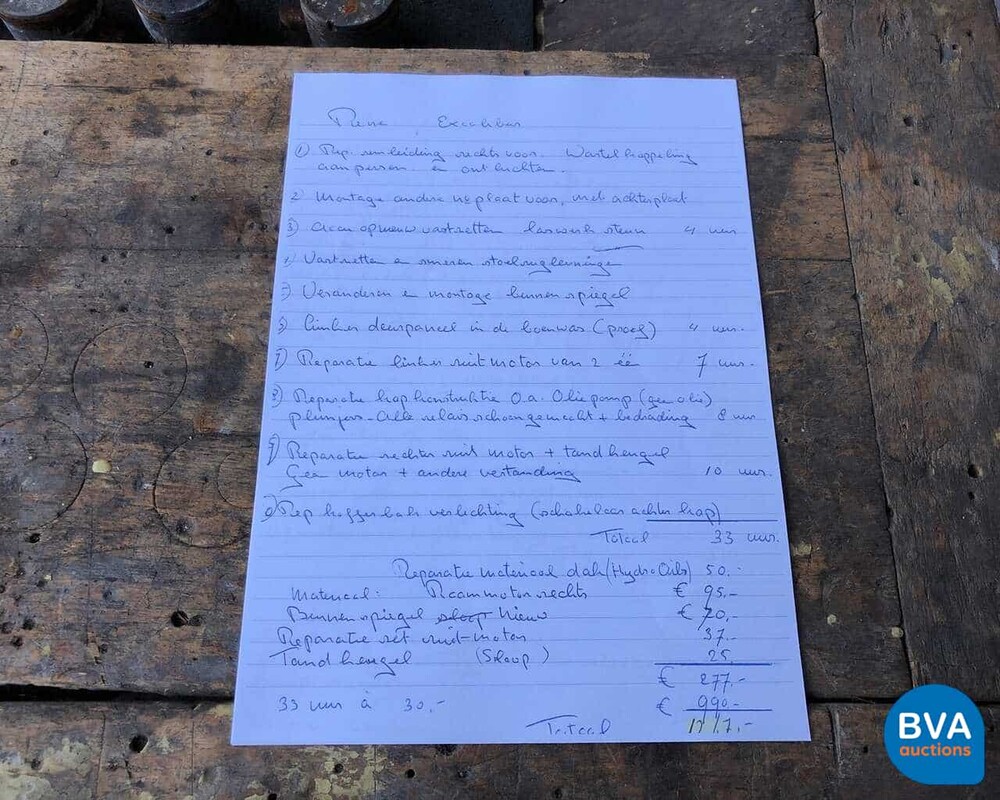 1) Rep. remleiding rechts voor. Wartel koppeling
aanpersen en ontluchten.
2 Montage andere nr plaat voor, met achterplaat
3) Accu opnieuw vastzetten laswerk steun 4 uur
Vastzetten smeren stoelrugleuningen
Veranderen en montage binnenspiegel
linker deurpaneel in de boenwas (proef) 4 uur.
7) Reparatie linker ruitmotor van 2 één 7 uur.
8) Reparatie kap konstruktie O.a. Oliepomp (geen olie)
plunjers - Alle relais schoongemaakt + bedrading 8 uur
9) Reparatie rechter ruit motor + tandhengel
Geen motor + andere vertanding 10 uur.
Rep bagagebak verlichting (schakelaar achter kap)
Totaal 33 uur.
Reparatie materiaal dak (Hydro Oils) 50.-
Materiaal: Raammotor rechts € 95.-
Binnenspiegel nieuw € 70,-
Reparatie set ruit-motor 37.-
Tandhengel (Sloop) 25
€ 277,-
33 uur à 30,- € 990.-
Totaal
BVA
auctions